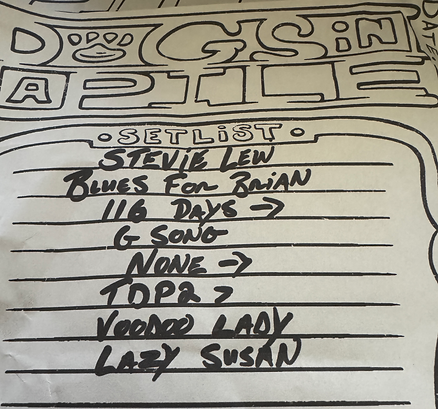 DOGS IN
A PILE
• SETLIST •
STEVIE LEW
BLUES FOR BRIAN
116 DAYS →
G SONG
NONE →
TDP2 >
VOODOO LADY
LAZY SUSAN